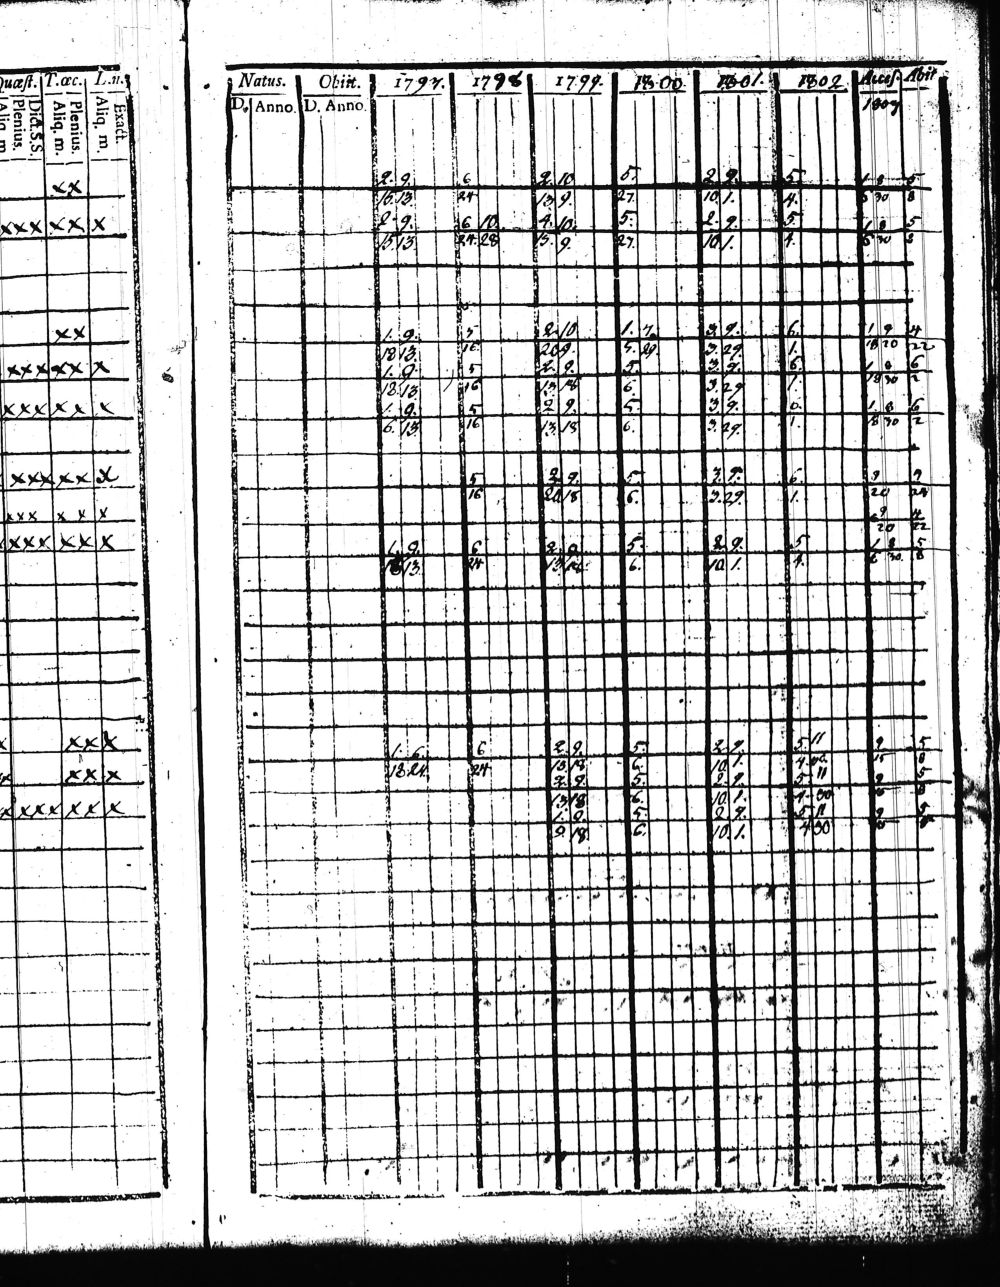 Quæst. T. œc. L. n.
Aliq. m. Plenius. Dict. S. S. Aliq. m. Plenius. Aliq. m. Exact.
Natus. Obiit. 1797. 1798 1799. 1800 1801. 1802 Acces. Abit
D. Anno. D. Anno. 1807
x x
2. 9. 6 2. 10 5. 2. 9. 5. 1 8 5
13. 24 13. 9. 27. 10. 1. 4. 6 30 8
x x x x x x
2. 9. 6 10 4. 10. 5. 2. 9. 5. 1 8 5
15 13 24. 28 9. 27. 10 1. 4. 6 30 8
x x
1. 9. 5 2. 10 1. 7. 3. 9. 6. 1 9 4
18 13. 16 20 9. 5. 29. 3. 29. 1. 18 20 22
x x x x x x
1. 9. 5 2. 9. 5 3. 9. 6. 1 8 6
18 13. 16 13 18 6 3. 29 1. 18 30 2
x x x x x x
1. 9. 5 2 9. 5. 3. 9. 6. 1. 8 6
6. 13. 16 13. 18 6. 3. 29. 1. 18 30 2
x x x x x x
5 2 9. 5 3. 9. 6. 9 9
16 20 18 6. 3. 29. 1. 20 24
x x x x x x
9 4
20 22
x x x x x x
1. 9. 6 2. 9. 5. 2. 9. 5 1 8 5
13. 24 13 18 6. 10. 1. 4. 6 30. 8
x x x
1. 6. 6 2. 9. 5. 2. 9. 5. 11 9. 5
18 24. 24 13 18 6. 10 1. 4 15 8
x x x
2. 9. 5. 2. 9. 5 11 9 5
13 18 6. 10 1. 4 30 8
x x x x x x x
1. 9. 5. 2 9. 5 11 9 5
9 18 6. 10 1. 4 30 8